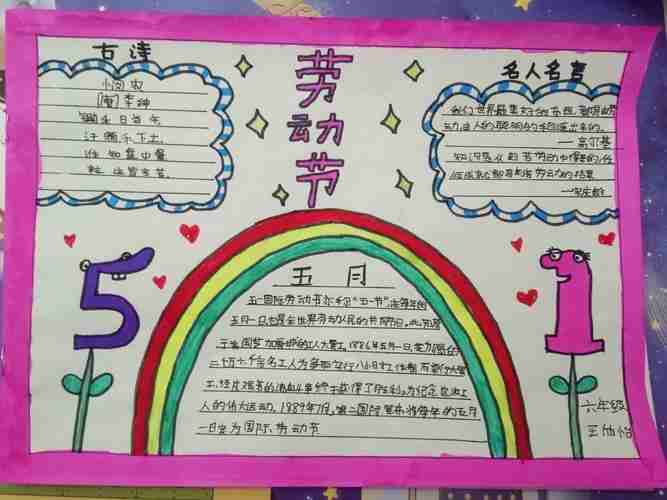 古诗
悯农
[唐]李绅
锄禾日当午
汗滴禾下土
谁知盘中餐
粒粒皆辛苦
劳动节
名人名言
我们世界最美好的东西,都是由劳
动,由人的聪明的手创造出来的。
——高尔基
知识是从劳动中得来的,任
何成就都是刻苦劳动的结果
——宋庆龄
5
1
五月
五一国际劳动节亦称"五一"节,在每年的
五月一日,它是全世界劳动人民的共同节日,此节源
于美国芝加哥城的工人大罢工,1886年5月一日,芝加哥的
二十万千余名工人为争取实行八小时工作制而举行大罢
工,经过艰苦的流血斗争终于获得了胜利,为纪念这次工
人的伟大运动,1889年7月,第二国际宣布将每年的五月
一日定为国际劳动节
六年级
王怡